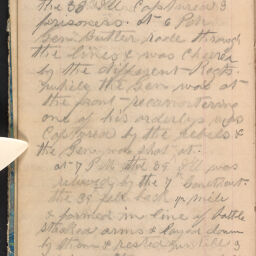 the 39 Ill Captured 3
prisoners. at 6 P.M.
Gen. Butler rode through
the lines & was cheered
by the different Regts.
while the Gen was at
the front reconnoitering
one of his orderlys was
Captured by the Rebels &
the Gen was shot at.
at 7 P.M. the 39 Ill was
relieved by the 7th Connecticut.
the 39 fell back 1/4 mile
& formed in line of battle
stacked arms & layed down
by them & rested until 3